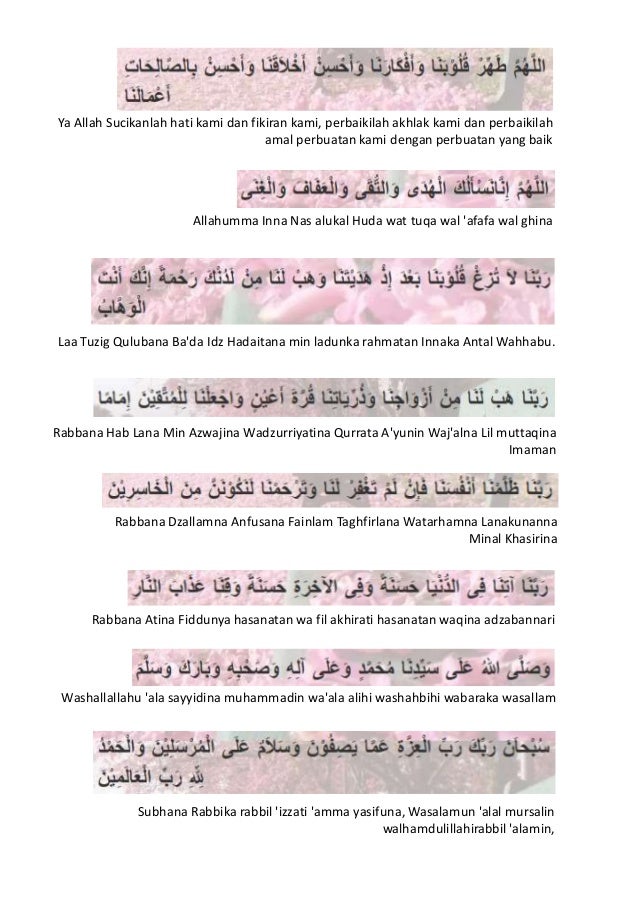 اللَّهُمَّ طَهِّرْ قُلُوْبَنَا وَأَفْكَارَنَا وَأَحْسِنْ أَخْلَاقَنَا وَأَحْسِنْ بِالصَّالِحَاتِ
أَعْمَالَنَا
Ya Allah Sucikanlah hati kami dan fikiran kami, perbaikilah akhlak kami dan perbaikilah
amal perbuatan kami dengan perbuatan yang baik
اللَّهُمَّ إِنَّانَسْأَلُكَ الْهُدَى وَالتُّقَى وَالْعَفَافَ وَالْغِنَى
Allahumma Inna Nas alukal Huda wat tuqa wal 'afafa wal ghina
رَبَّنَا لاَ تُزِغْ قُلُوْبَنَا بَعْدَ إِذْ هَدَيْتَنَا وَهَبْ لَنَا مِنْ لَدُنْكَ رَحْمَةً إِنَّكَ أَنْتَ
الْوَهَّابُ
Laa Tuzig Qulubana Ba'da Idz Hadaitana min ladunka rahmatan Innaka Antal Wahhabu.
رَبَّنَا هَبْ لَنَا مِنْ أَزْوَاجِنَا وَذُرِّيَاتِنَا قُرَّةَ أَعْيُنٍ وَاجْعَلْنَا لِلْمُتَّقِيْنَ إِمَامًا
Rabbana Hab Lana Min Azwajina Wadzurriyatina Qurrata A'yunin Waj'alna Lil muttaqina
Imaman
رَبَّنَا ظَلَمْنَا أَنْفُسَنَا فَإِنْ لَمْ تَغْفِرْ لَنَا وَتَرْحَمْنَا لَنَكُوْنَنَّ مِنَ الْخَاسِرِيْنَ
Rabbana Dzallamna Anfusana Fainlam Taghfirlana Watarhamna Lanakunanna
Minal Khasirina
رَبَّنَا آتِنَا فِى الدُّنْيَا حَسَنَةً وَفِى الآخِرَةِ حَسَنَةً وَقِنَا عَذَابَ النَّارِ
Rabbana Atina Fiddunya hasanatan wa fil akhirati hasanatan waqina adzabannari
وَصَلَّى اللهُ عَلَى سَيِّدِنَا مُحَمَّدٍ وَعَلَى آلِهِ وَصَحْبِهِ وَبَارَكَ وَسَلَّمَ
Washallallahu 'ala sayyidina muhammadin wa'ala alihi washahbihi wabaraka wasallam
سُبْحَانَ رَبِّكَ رَبِّ الْعِزَّةِ عَمَّا يَصِفُوْنَ وَسَلاَمٌ عَلَى الْمُرْسَلِيْنَ وَالْحَمْدُ
لِلَّهِ رَبِّ الْعَالَمِيْنَ
Subhana Rabbika rabbil 'izzati 'amma yasifuna, Wasalamun 'alal mursalin
walhamdulillahirabbil 'alamin,